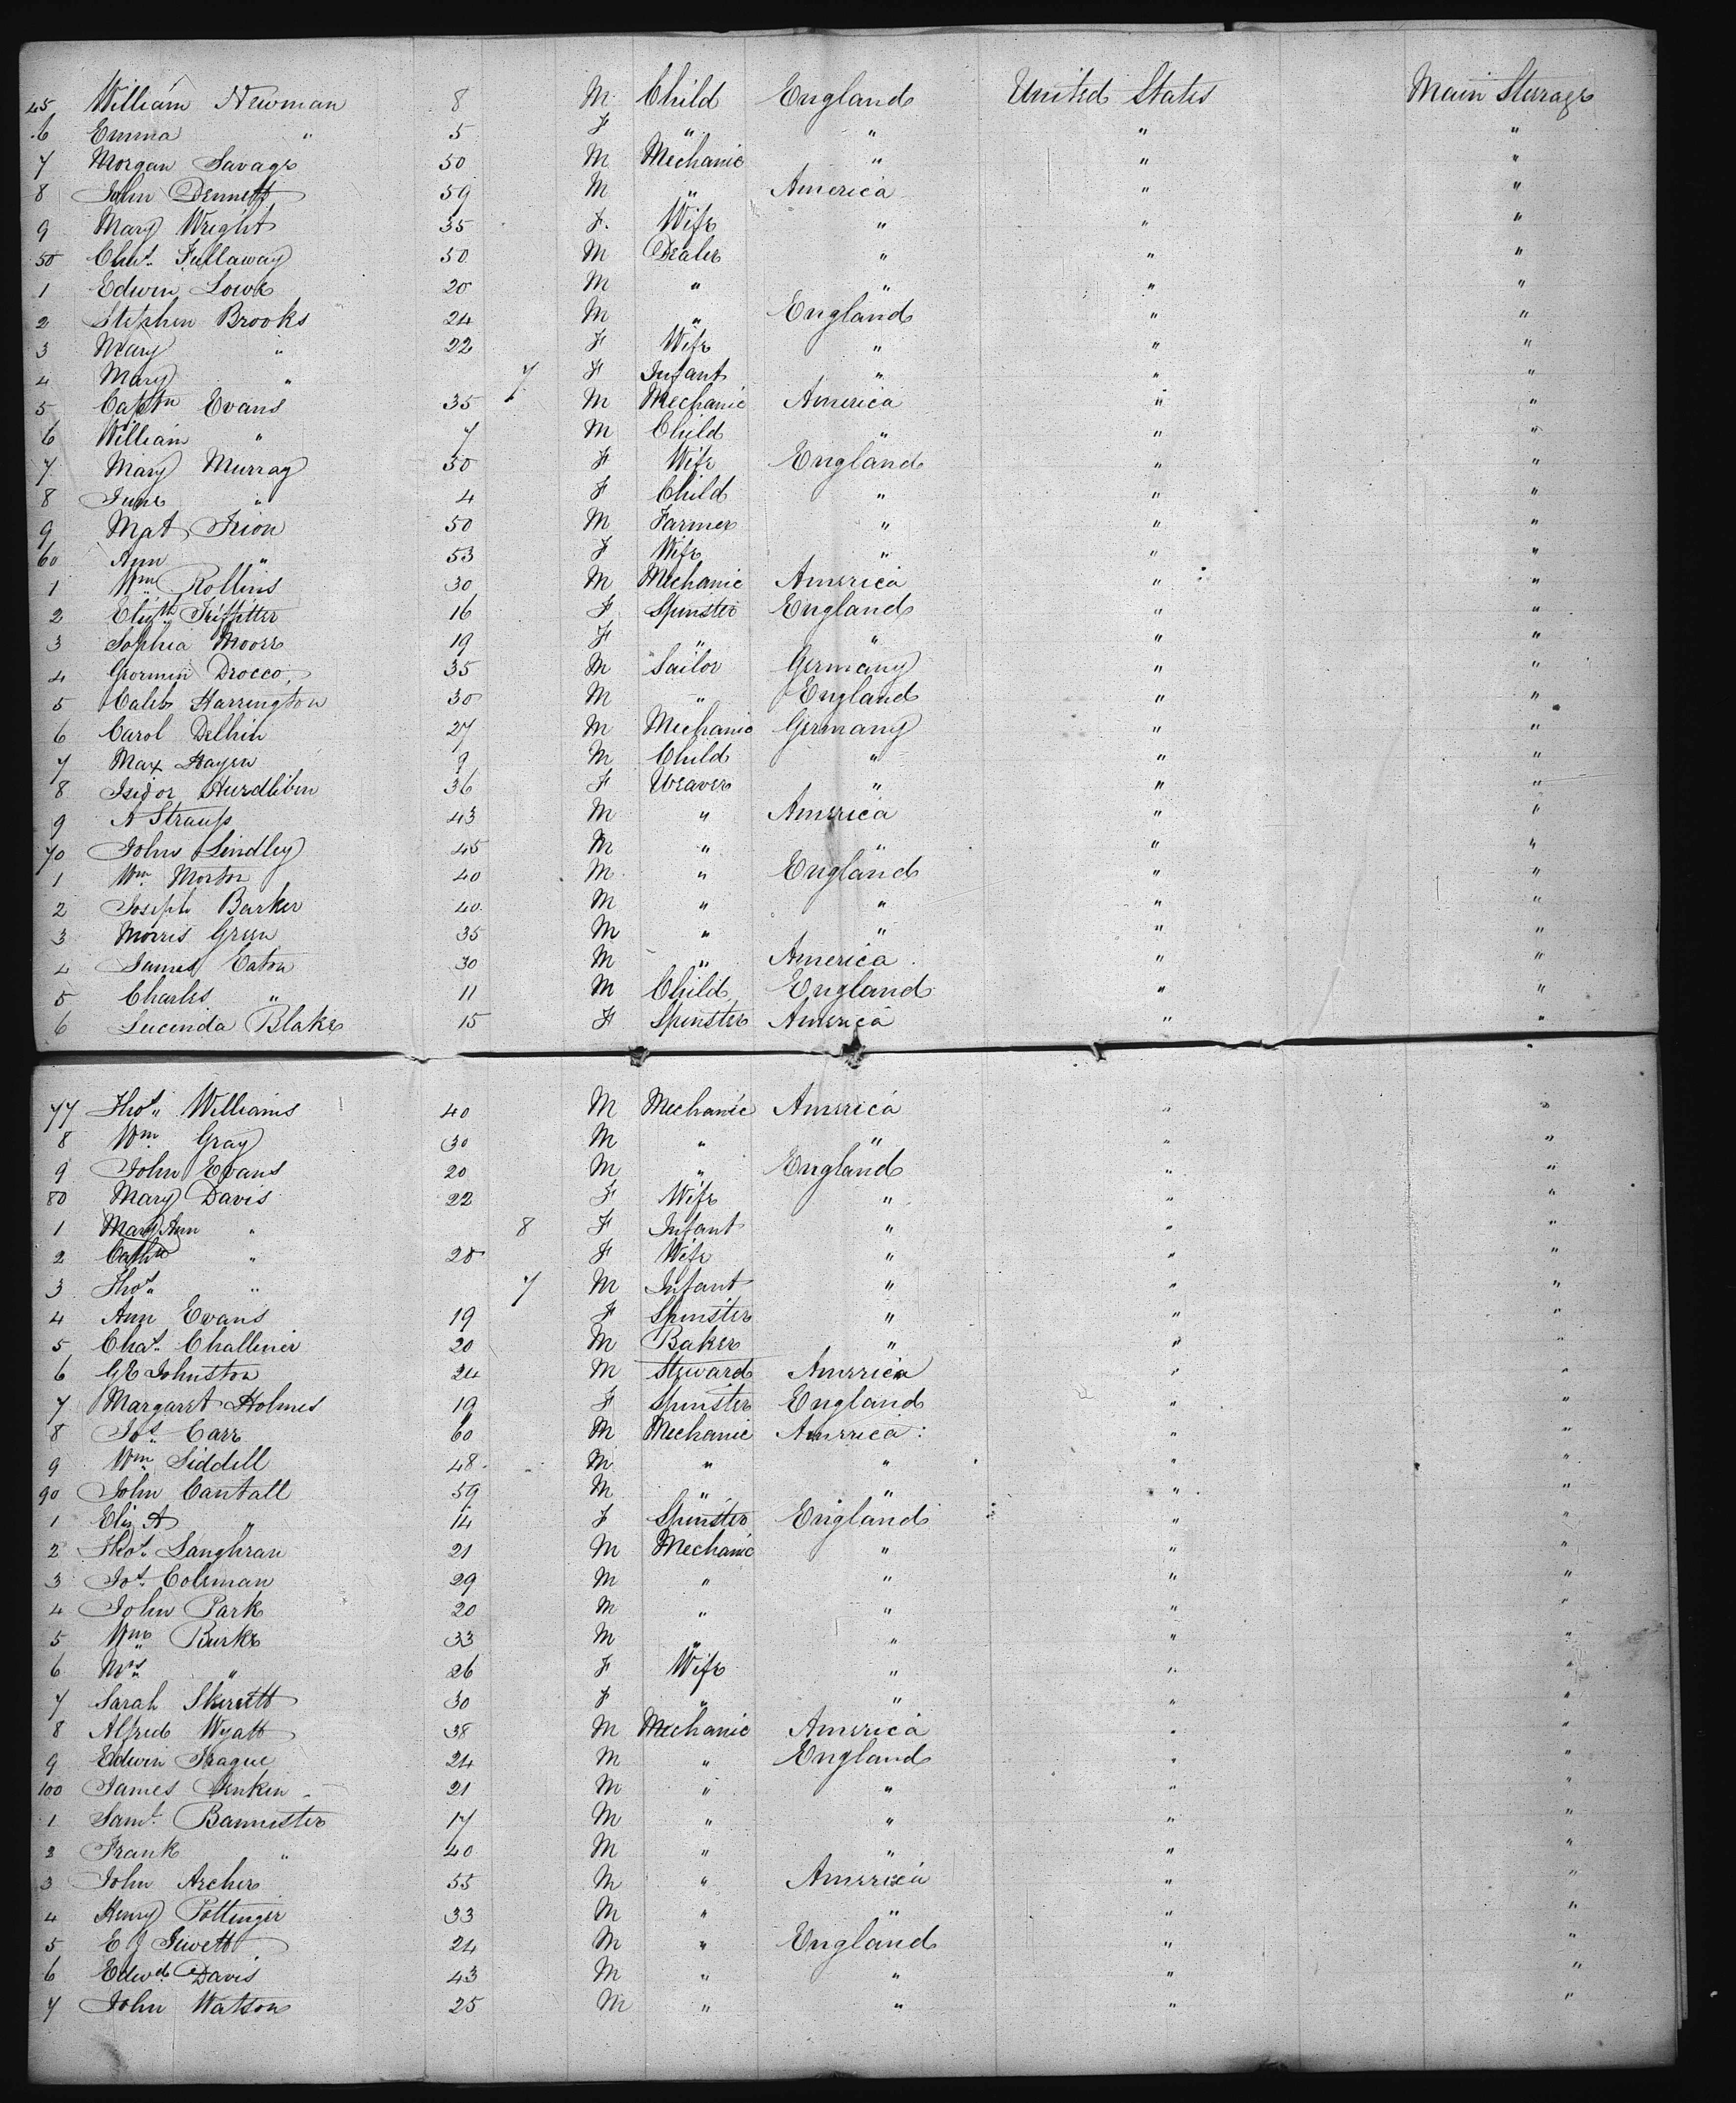 45 William Newman 8 M Child England United States Main Sterrage
6 Emma " 5 F " " " "
7 Morgan Savage 50 M Mechanic " " "
8 John Dennett 59 M " America " "
9 Mary Wright 35 F. Wife " " "
50 Chas. Fullaway 50 M Dealer " " "
1 Edwin Lowe 20 M " " " "
2 Stephen Brooks 24 M " England " "
3 Mary " 22 F Wife " " "
4 Mary " 7 F Infant " " "
5 Captn Evans 35 M Mechanic America " "
6 William " 7 M Child " " "
7 Mary Murray 30 F Wife England " "
8 June " 4 F Child " " "
9 Mat 50 M Farmer " " "
60 Ann " 53 F Wife " " "
1 Wm Rollins 30 M Mechanic America " "
2 Elizth 16 F Spinster England " "
3 Sophia Moore 19 F " " " "
4 Drocco 35 M Sailor Germany " "
5 Caleb Harrington 30 M " England " "
6 Carol 27 M Mechanic Germany " "
7 Max Hayen 9 M Child " " "
8 Isidor 36 F Weaver " " "
9 A Strauss 43 M " America " "
70 John Lindley 45 M " " " "
1 Wm Morton 40 M " England " "
2 Joseph Barker 40 M " " " "
3 Morris Green 35 M " " " "
4 James Eaton 30 M " America " "
5 Charles " 11 M Child England " "
6 Lucinda Blake 15 F Spinster America " "
77 Thos. Williams 40 M Mechanic America " "
8 Wm Gray 30 M " " " "
9 John Evans 20 M " England " "
80 Mary Davis 22 F Wife " " "
1 Mary Ann " 8 F Infant " " "
2 Cathe " 28 F Wife " " "
3 Thos " 7 M Infant " " "
4 Ann Evans 19 F Spinster " " "
5 Chas. Challenir 20 M Baker " " "
6 GE Johnston 24 M Steward America " "
7 Margaret Holmes 19 F Spinster England " "
8 Jos. Carr 60 M Mechanic America " "
9 Wm Siddell 48 M " " " "
90 John Cantall 59 M " " " "
1 Eliz A " 14 F Spinster England " "
2 Thos. Langhran 21 M Mechanic " " "
3 Jos. Coleman 29 M " " " "
4 John Park 20 M " " " "
5 Wm Burke 33 M " " " "
6 Mrs " 26 F Wife " " "
7 Sarah Skerrett 30 F " " " "
8 Alfred Wyatt 38 M Mechanic America " "
9 Edwin 24 M " England " "
100 James Jenken 21 M " " " "
1 Saml. Bannister 17 M " " " "
2 Frank " 40 M " " " "
3 John Archer 55 M " America " "
4 Henry Pottinger 33 M " " " "
5 E J Jewett 24 M " England " "
6 Edwd. Davis 43 M " " " "
7 John Watson 25 M " " " "